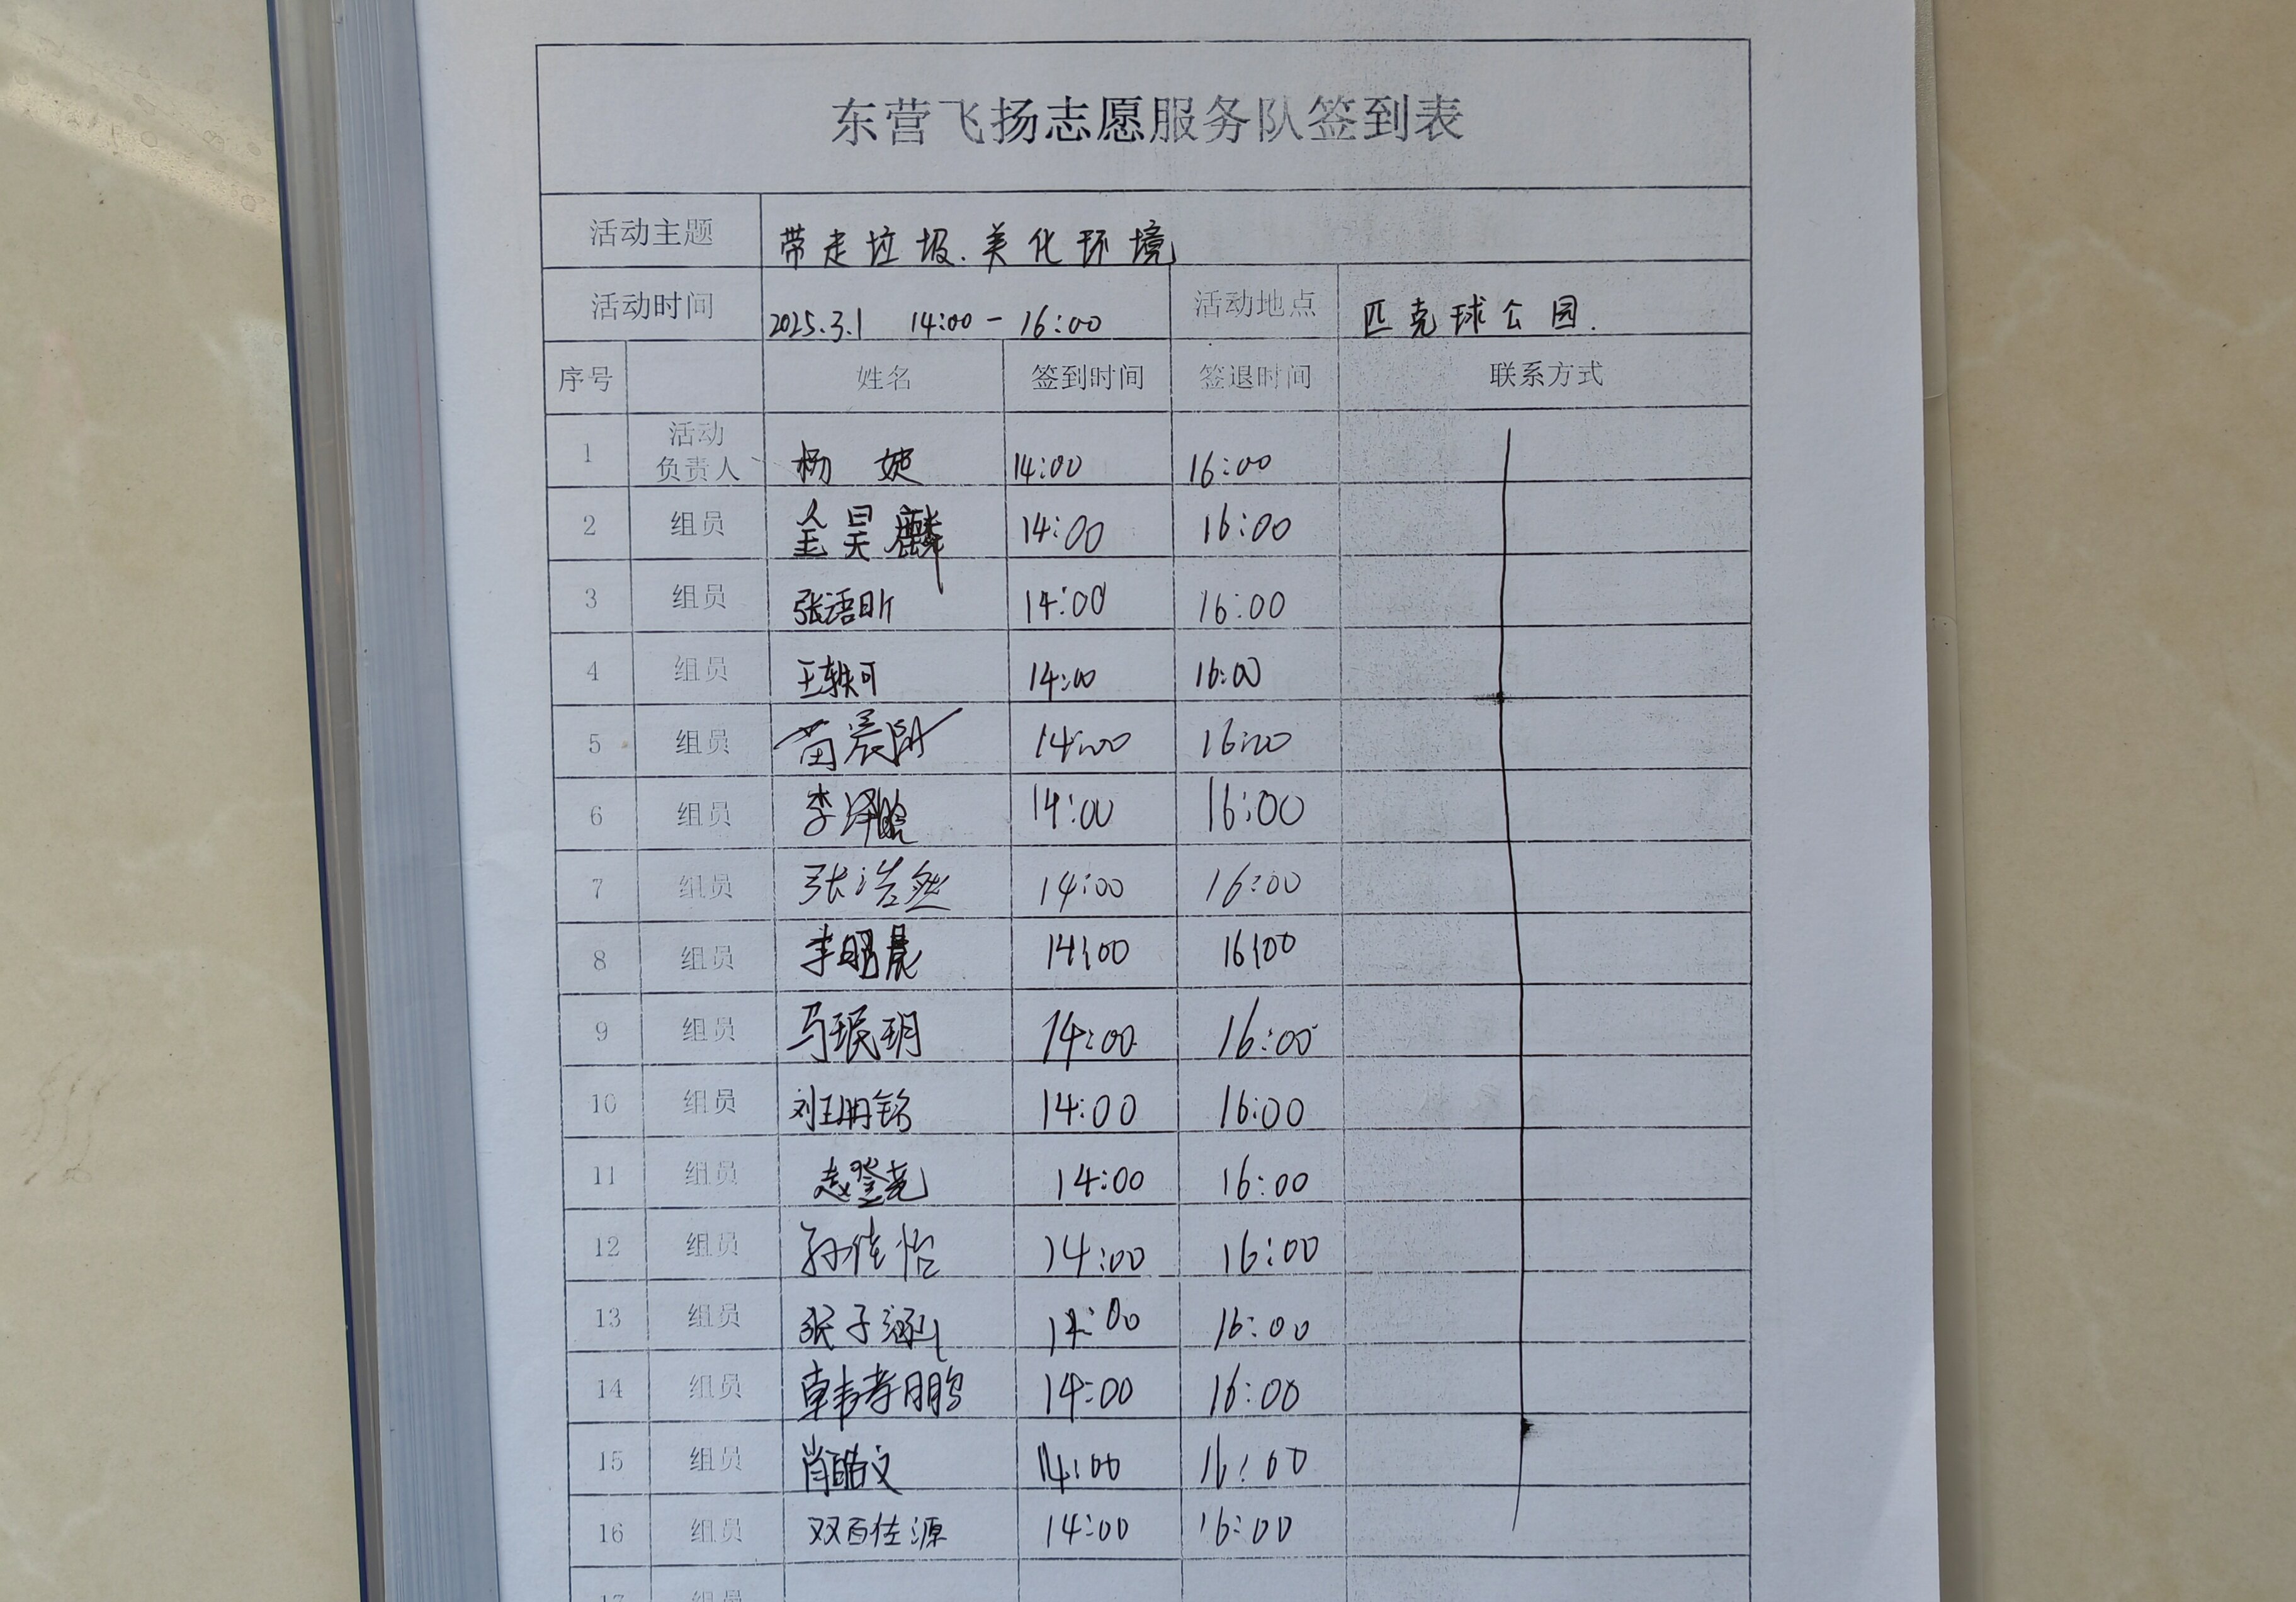 东营飞扬志愿服务队签到表
活动主题 带走垃圾、美化环境
活动时间 2025.3.1 14:00-16:00 活动地点 匹克球公园.
序号 姓名 签到时间 签退时间 联系方式
1 活动负责人 杨 14:00 16:00
2 组员 金昊麟 14:00 16:00
3 组员 张语昕 14:00 16:00
4 组员 王轶可 14:00 16:00
5 组员 苗晨 14:00 16:00
6 组员 李泽晗 14:00 16:00
7 组员 张浩然 14:00 16:00
8 组员 李昭晨 14:00 16:00
9 组员 马珉玥 14:00 16:00
10 组员 刘珊铭 14:00 16:00
11 组员 赵登尧 14:00 16:00
12 组员 孙佳怡 14:00 16:00
13 组员 张子涵 14:00 16:00
14 组员 韩孝鹏 14:00 16:00
15 组员 肖皓文 14:00 16:00
16 组员 双百佳源 14:00 16:00
17 组员